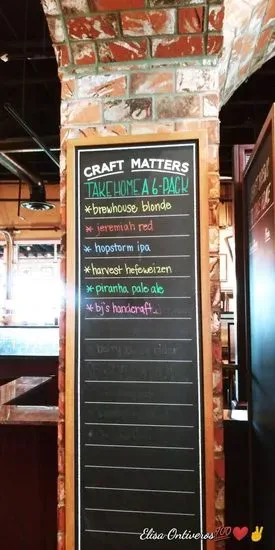 CRAFT MATTERS
TAKE HOME A 6-PACK
* brewhouse blonde
* jeremiah red
* hopstorm ipa
* harvest hefeweizen
* piranha pale ale
* bj's handcraft
Elisa Ontiveros💯❤️✌️